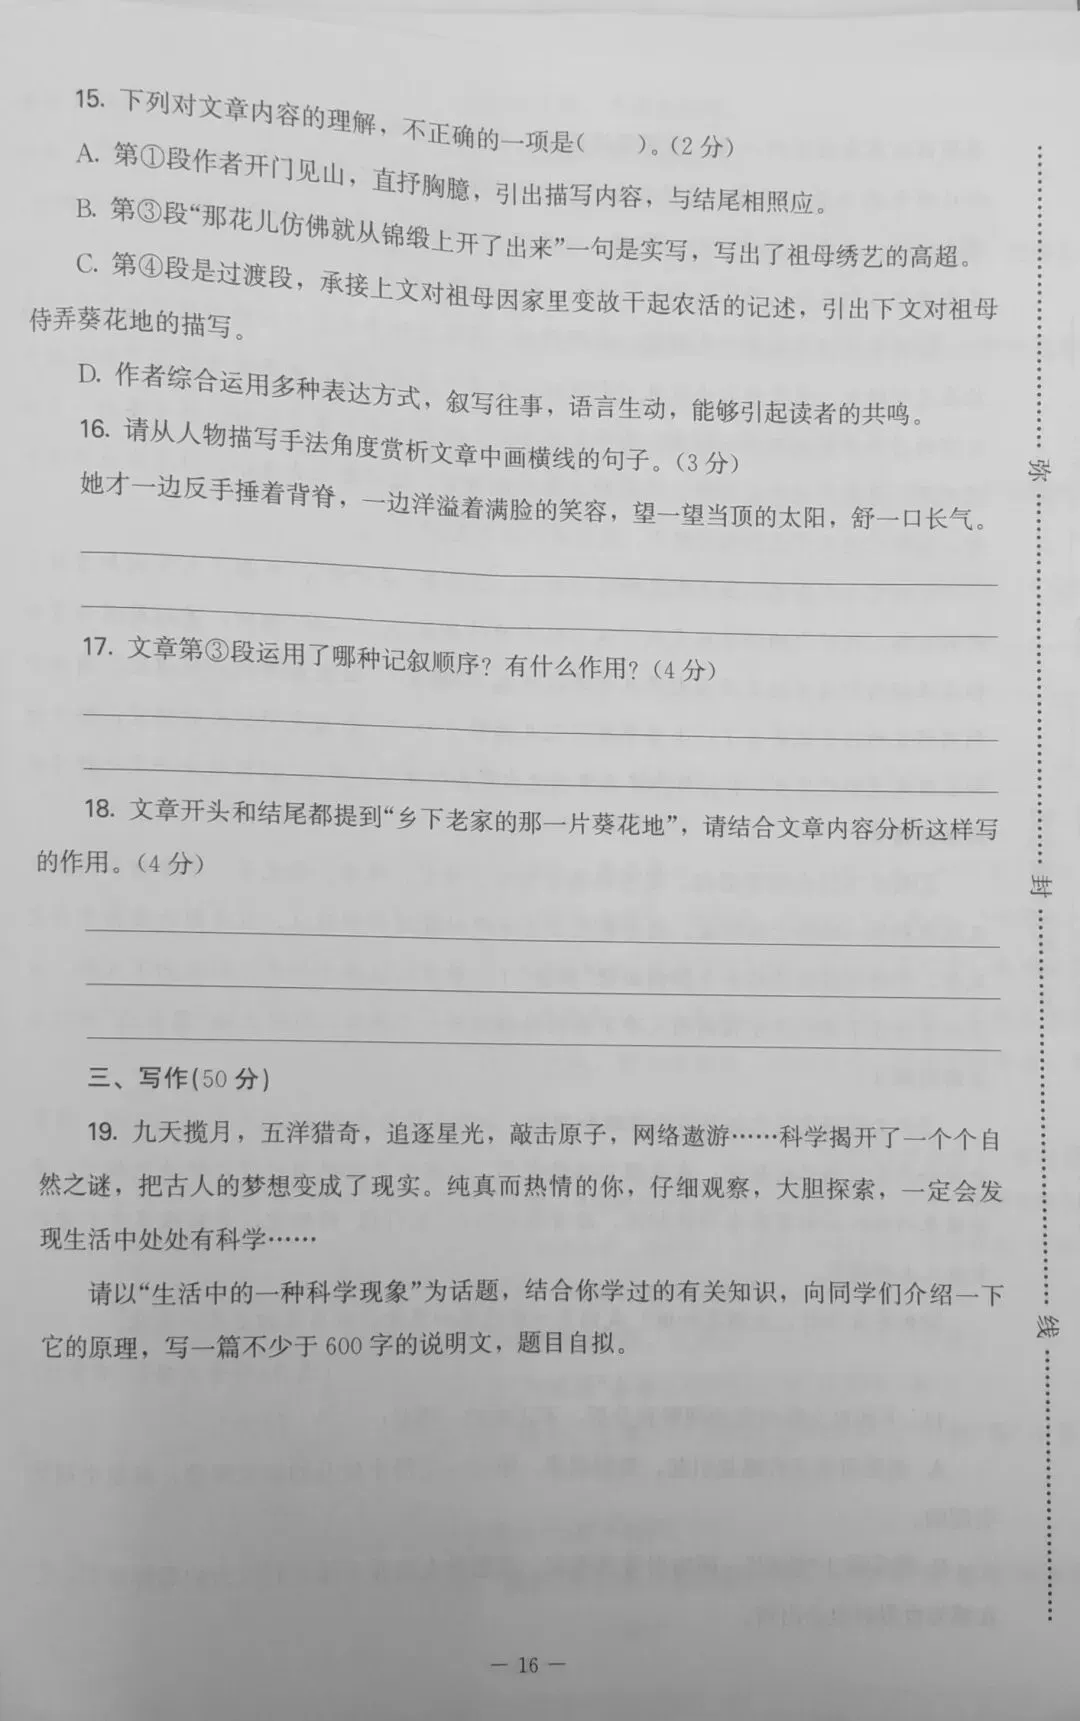 15. 下列对文章内容的理解，不正确的一项是(　　)。(2分)
A. 第①段作者开门见山，直抒胸臆，引出描写内容，与结尾相照应。
B. 第③段“那花儿仿佛就从锦缎上开了出来”一句是实写，写出了祖母绣艺的高超。
C. 第④段是过渡段，承接上文对祖母因家里变故干起农活的记述，引出下文对祖母
侍弄葵花地的描写。
D. 作者综合运用多种表达方式，叙写往事，语言生动，能够引起读者的共鸣。
16. 请从人物描写手法角度赏析文章中画横线的句子。(3分)
她才一边反手捶着背脊，一边洋溢着满脸的笑容，望一望当顶的太阳，舒一口长气。
17. 文章第③段运用了哪种记叙顺序？有什么作用？(4分)
18. 文章开头和结尾都提到“乡下老家的那一片葵花地”，请结合文章内容分析这样写
的作用。(4分)
三、写作(50分)
19. 九天揽月，五洋猎奇，追逐星光，敲击原子，网络遨游……科学揭开了一个个自
然之谜，把古人的梦想变成了现实。纯真而热情的你，仔细观察，大胆探索，一定会发
现生活中处处有科学……
请以“生活中的一种科学现象”为话题，结合你学过的有关知识，向同学们介绍一下
它的原理，写一篇不少于600字的说明文，题目自拟。
— 16 —
弥
封
线